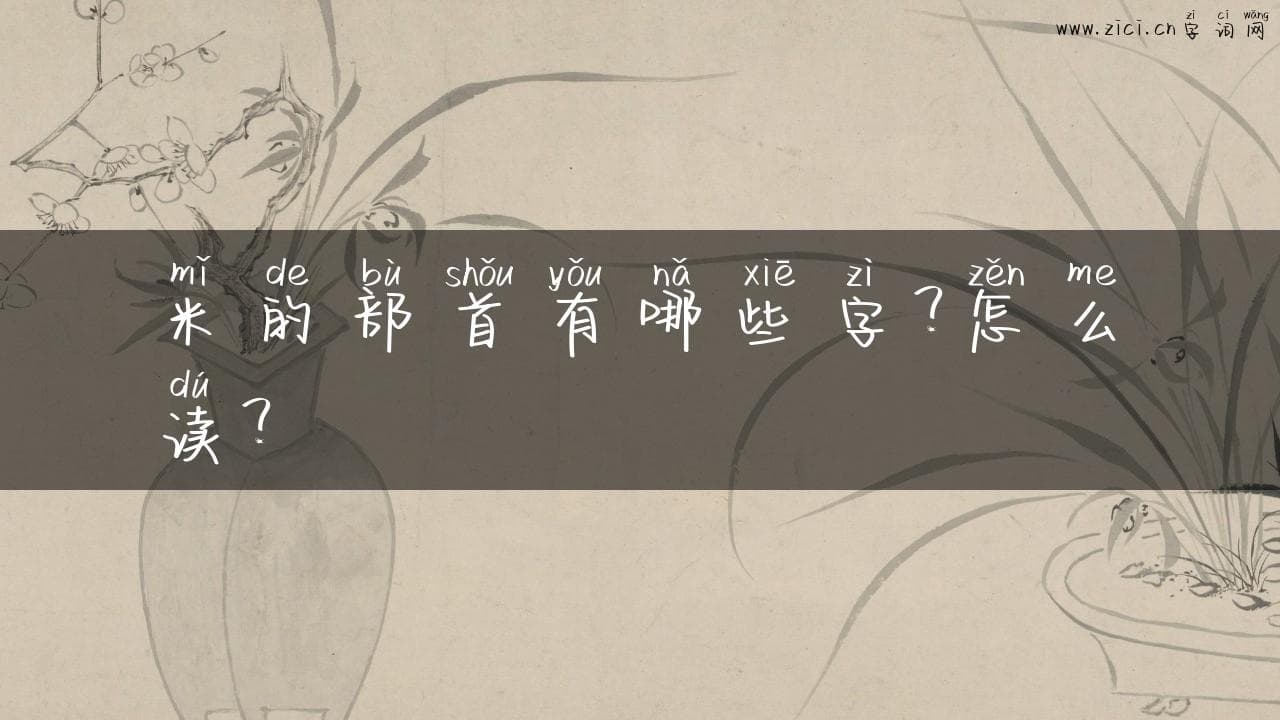 zì cí wǎng
www.zici.cn字词网
mǐ de bù shǒu yǒu nǎ xiē zì zěn me
米的部首有哪些字？怎么
dú
读？